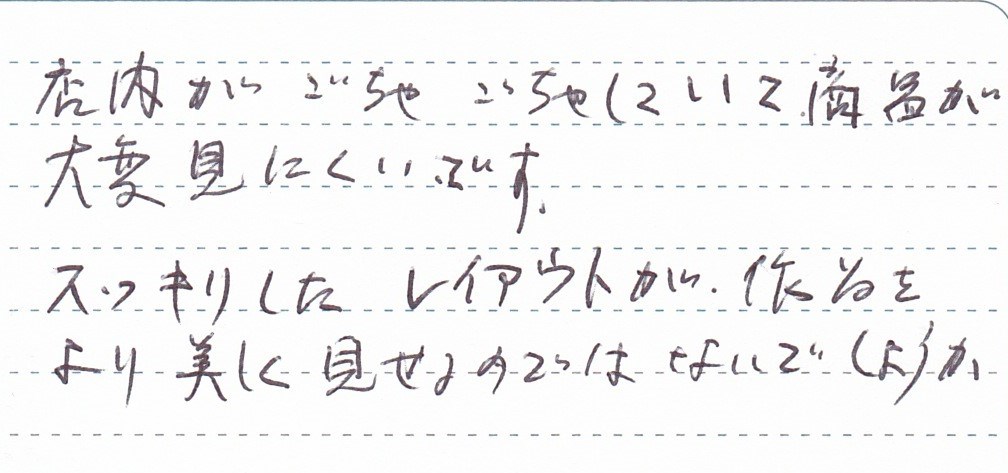 店内が ごちゃ ごちゃしていて 商品が
大変見にくいです。
スッキリした レイアウトが、作品を
より 美しく 見せるのではないでしょうか